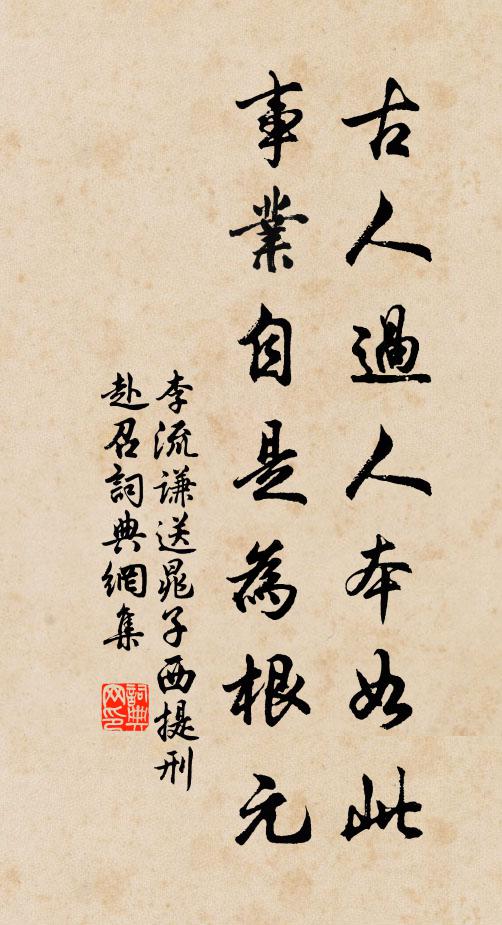 古人過人本如此
事業自是為根元
李流謙送晁子西提刑
赴召詞典網集
詞典
网印